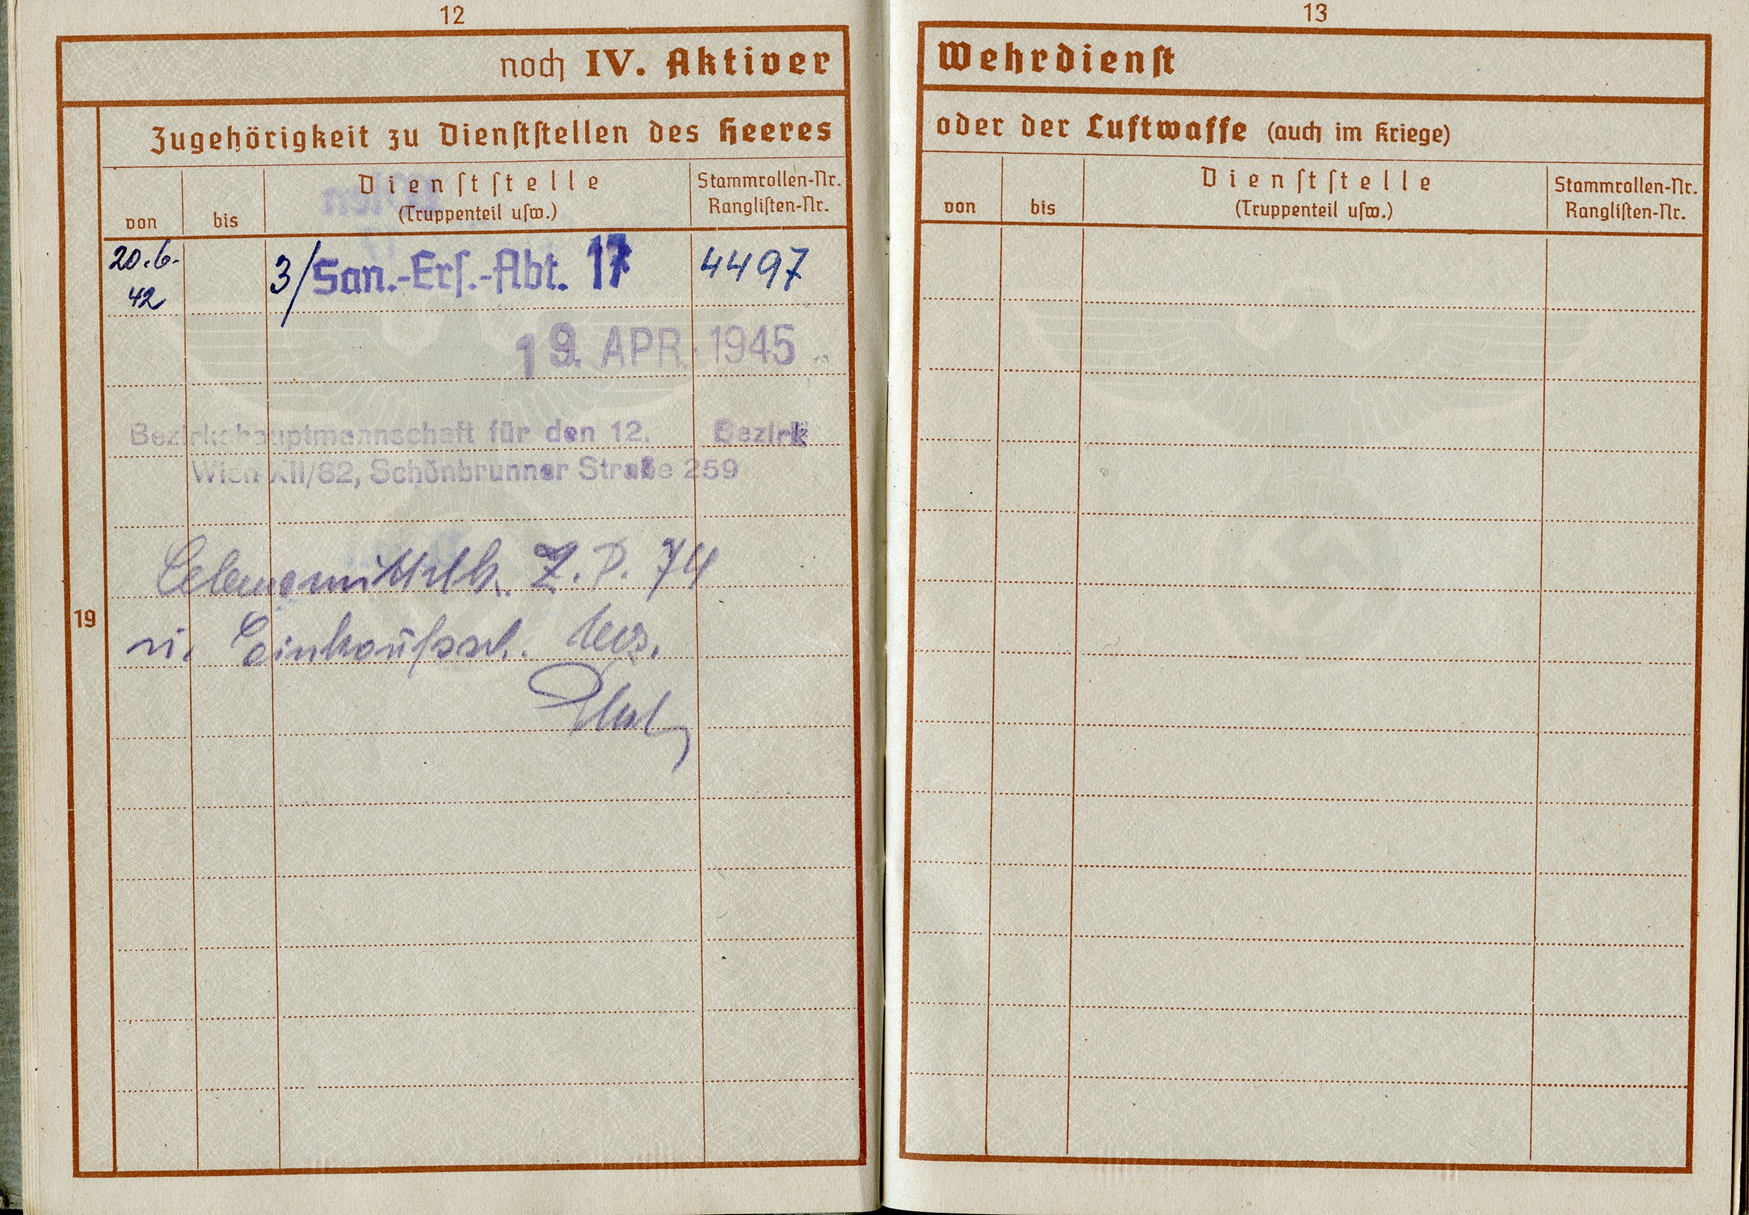 12
noch IV. Aktiver
Zugehörigkeit zu Dienststellen des Heeres
von
bis
Dienststelle
(Truppenteil usw.)
Stammrollen-Nr.
Ranglisten-Nr.
20.6.
42
3/San.-Ers.-Abt. 17
4497
19. APR. 1945
Bezirkshauptmannschaft für den 12. Bezirk
Wien XII/82, Schönbrunner Straße 259
Lebensmittelk. Z. P. 74
u. Einkaufssch.
19
13
Wehrdienst
oder der Luftwaffe (auch im Kriege)
von
bis
Dienststelle
(Truppenteil usw.)
Stammrollen-Nr.
Ranglisten-Nr.